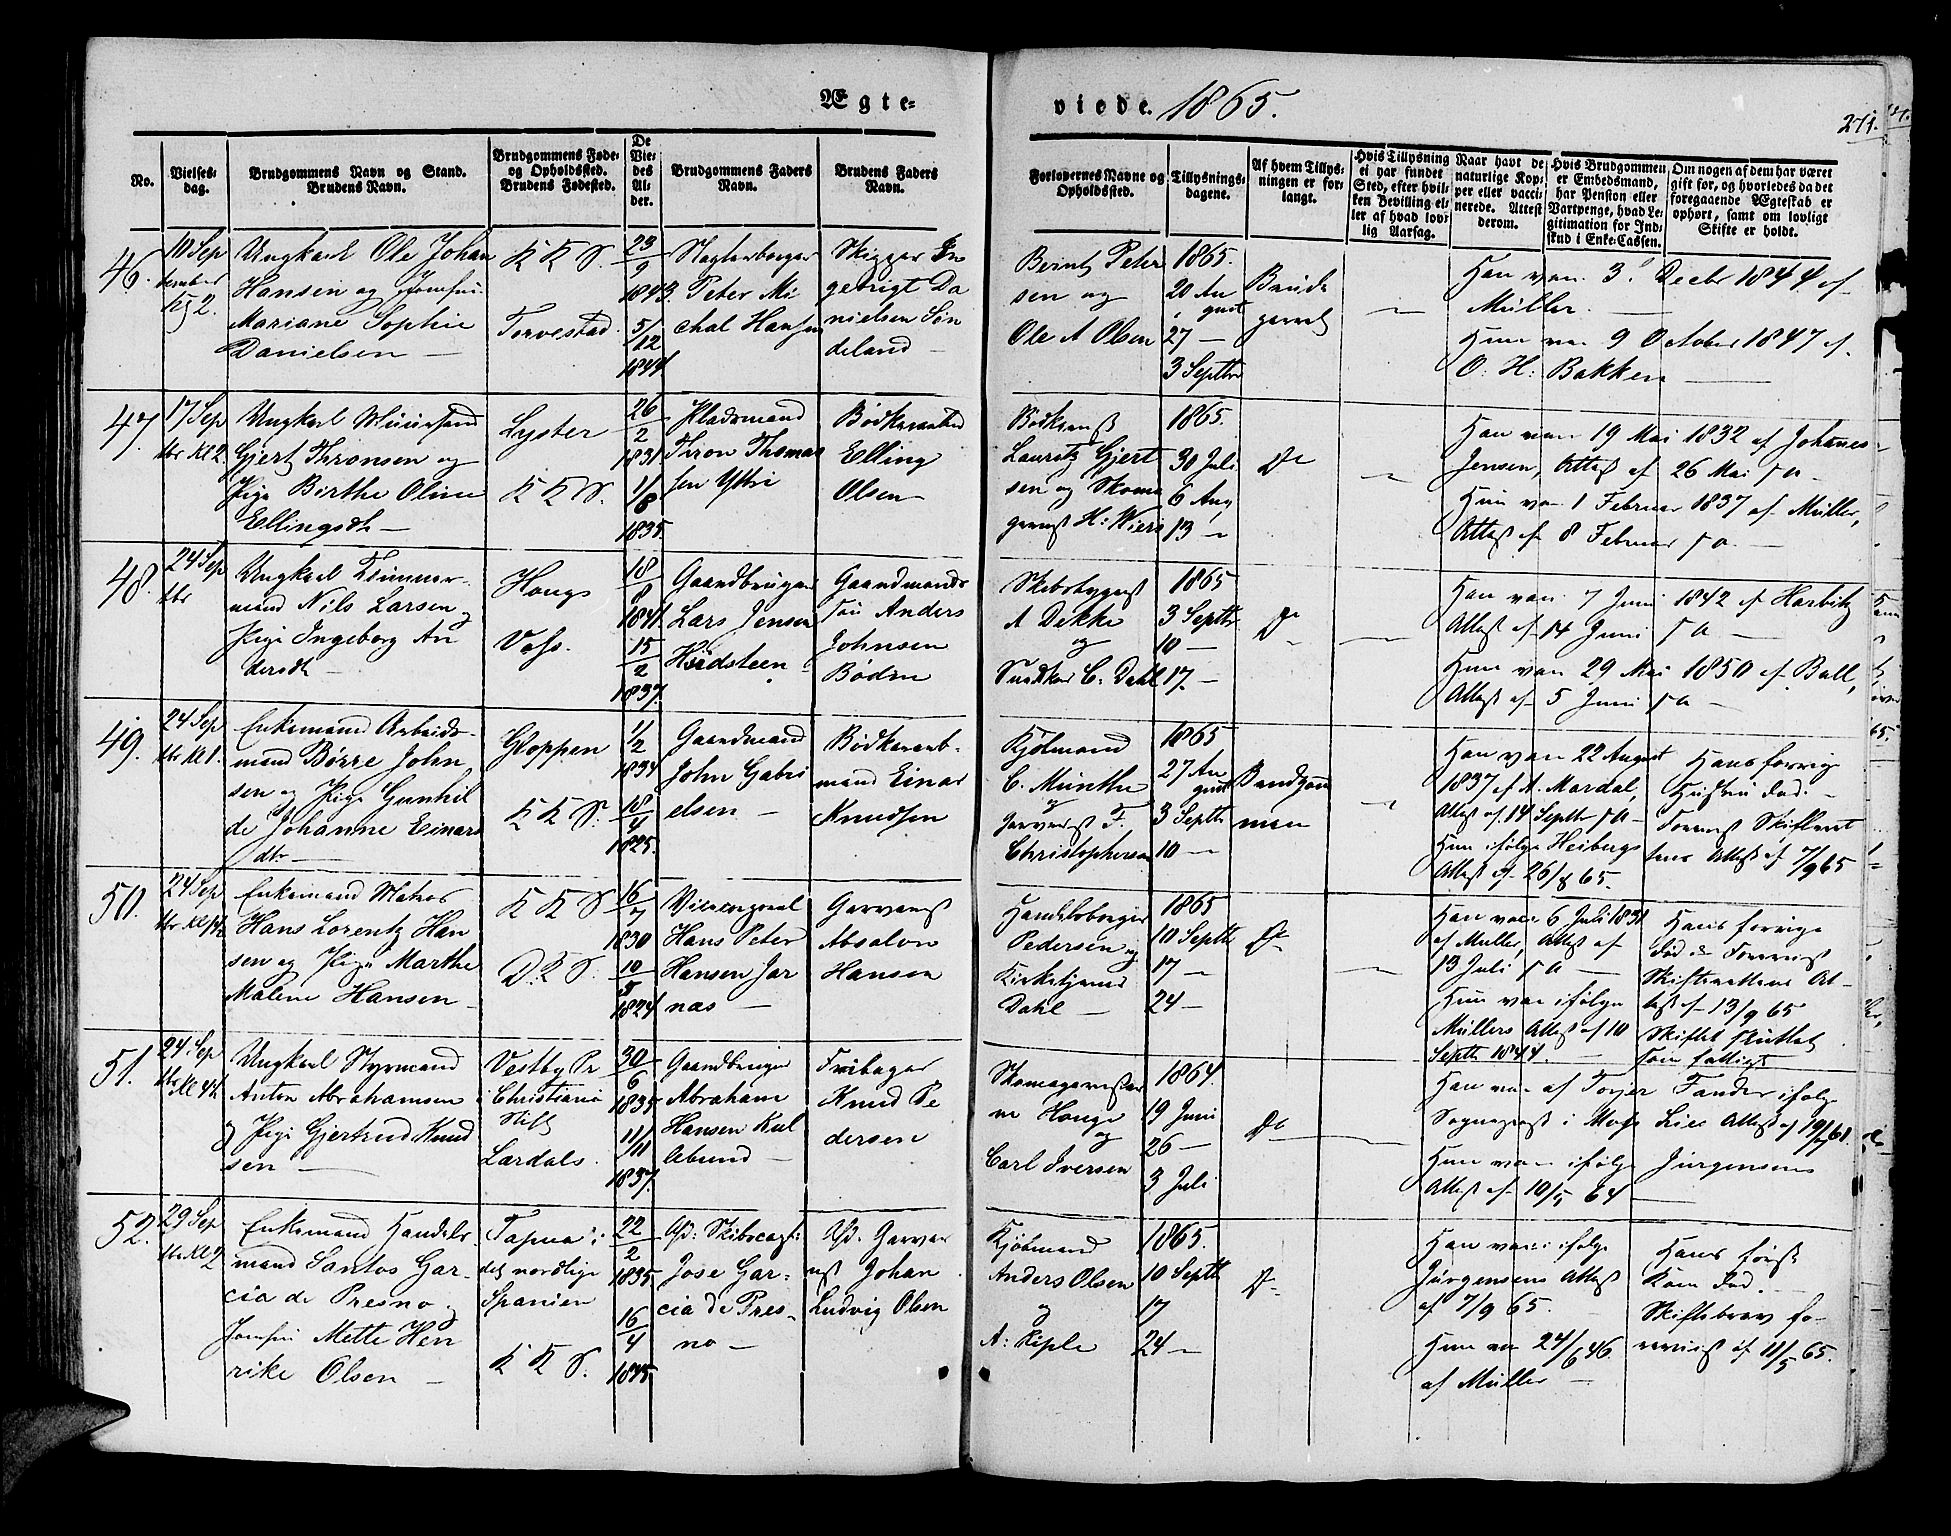 Ægte-
viede. 1865.
271.
No.
Vielses-
dag.
Brudgommens Navn og Stand.
Brudens Navn.
Brudgommens Føde-
og Opholdssted.
Brudens Fødested.
De
Vie-
des
Al-
der.
Brudgommens Faders
Navn.
Brudens Faders
Navn.
Forlovernes Navne og
Opholdssted.
Tillysnings-
dagene.
Af hvem Tillys-
ningen er for-
langt.
Hvis Tillysning
ei har fundet
Sted, efter hvil-
ken Bevilling el-
ler af hvad lov-
lig Aarsag.
Naar havt de
naturlige Kop-
per eller vacci-
nerede. Attest
derom.
Hvis Brudgommen
er Embedsmand,
har Pension eller
Vartpenge, hvad Le-
gitimation for Ind-
skud i Enke-Cassen.
Om nogen af dem har været
gift før, og hvorledes da det
foregaaende Ægteskab er
ophørt, samt om lovligt
Skifte er holdt.
46.
10 Sep
tember
Kl 2.
Ungkarl Ole Johan
Hansen og Jomfru
Mariane Sophie
Danielsen —
K K S.
Torvestad.
23/9
1843
5/12
1844
Peter Mi
chal Hansen
Skigger In
gebrigt Da
nielsen Søn
deland —
Berint Peter
sen og
Ole A Olsen
1865.
20 Au
gust
27 —
3 Septbr
Brude
parret
Han var 3 Decbr 1844 af
Müller. —
Hun var 9 October 1847 af
O: H: Bakken —
47.
17 Sep
tbr Kl 2.
Ungkarl Muursvend
Gjert Thronsen og
Pige Birthe Oline
Ellingsdtr —
Lyster
K K S.
26/2
1831
1/8
1835.
Pladsmand
Thron Thomas
sen Yttri
Bødkersvend
Elling
Olsen —
Bødkermst
Lauritz Gjert
sen og Skoma
germst H: Wiers
1865.
30 Juli
6 Aug
13 —
Do
Han var 19 Mai 1832 af Johannes
Jensen, Attest af 26 Mai s a —
Hun var 1 Februar 1837 af Müller,
Attest af 8 Februar s a —
48.
24 Sep
tbr
Ungkarl Tømmer-
mand Nils Larsen og
Pige Ingeborg An
dersdtr —
Hougs
Voss.
18/8
1841.
15/2
1837.
Gaardbruger
Lars Jensen
Hedsteen
Gaardmands
Anders
Johnsen
Bøden
Skibsbygmst
A Dekke
og
C. Dahl
1865
3 Septbr
10 —
17. —
Do
Han var 7 Juni 1842 af Harbitz
Attest af 14 Juni s a —
Hun var 29 Mai 1850 af Ball,
Attest af 5 Juni s a —
49.
24 Sep
tbr Kl 1.
Enkemand Arbeids-
mand Børre John
sen og Pige Gunhil
de Johanne Einars
dtr —
Gloppen
K K S.
1/2
1834
18/4
1825.
Gaardmand
John Gabri
elsen —
Bødkerarb-
mand Einar
Knudsen
Kjøbmand
C. Münthe
og
Garvermst F.
Christophersen
1865
27 Au
gust
3 Septbr
10 —
Brudgom
men
Han var 22 August
1837 af A. Mardal,
Attest af 14 Septbr s a —
Hun ifølge Heibergs
Attest af 26/8 65.
Hans forrige
Hustru død. —
Forevist Skifteret
tens Attest af 7/9 65
50.
24 Sep
tbr Kl 1½
Enkemand Matros
Hans Lorentz Han
sen og Pige Marthe
Malene Hansen —
K K S
D. K S.
16/7
1830
10/5
1824
Hans Peter
Hansen Jor
næs —
Garvermst
Absalon
Hansen
Handelsborger
Pedersen og
Kirketjener
Dahl —
1865
10 Septbr
17 —
24 —
Do
Han var 6 Juli 1831
af Müller, Attest af
13 Juli s a —
Hun var ifølge
Müllers Attest af 10
Septbr 1844. —
Hans forrige
død. Forevist
Skifterettens At-
test af 13/9 65
Skiftet sluttet
som fattigt
51.
24. Sep
tbr Kl 4½
Ungkarl Styrmand
Anton Abrahamsen
og Pige Gjertrud Knud
sen —
Vestby Pr
i Christiania
Stift
Lærdals.
30/6
1835
11/11
1837.
Gaardbruger
Abraham
Hansen Kul
åbund —
Fribager
Knud Pe
dersen
Skomagermester
ne Houge
og
Carl Iversen
1864.
19 Juni
26 —
3 Juli
Do
Han var af Torjer Tander ifølge
Sognepræst i Moss Lies Attest af 19/7 61.
Hun var ifølge Jürgensens
Attest af 10/5 64 —
52.
29 Sep
tbr Kl 2
Enkemand Handels-
mand Santos Gar-
cia de Presno og
Jomfru Mette Hen
rike Olsen —
Tapia i
det nordlige
Spanien
K K S.
22/2
1835
16/4
1845.
Afd: Skibscapt:
Jose Gar-
cia de Pres-
no —
Afd. Garver
mst Johan
Ludvig Olsen
Kjøbmand
Anders Olsen
og
A: Kiple
1865.
10 Septbr
17
24 —
Do
Han var ifølge
Jürgensens Attest
af 7/9 65.
Hun var 24/6 46.
af Müller —
Hans første
Kone død. —
Skiftebrev fo-
revist af 11/5 65.